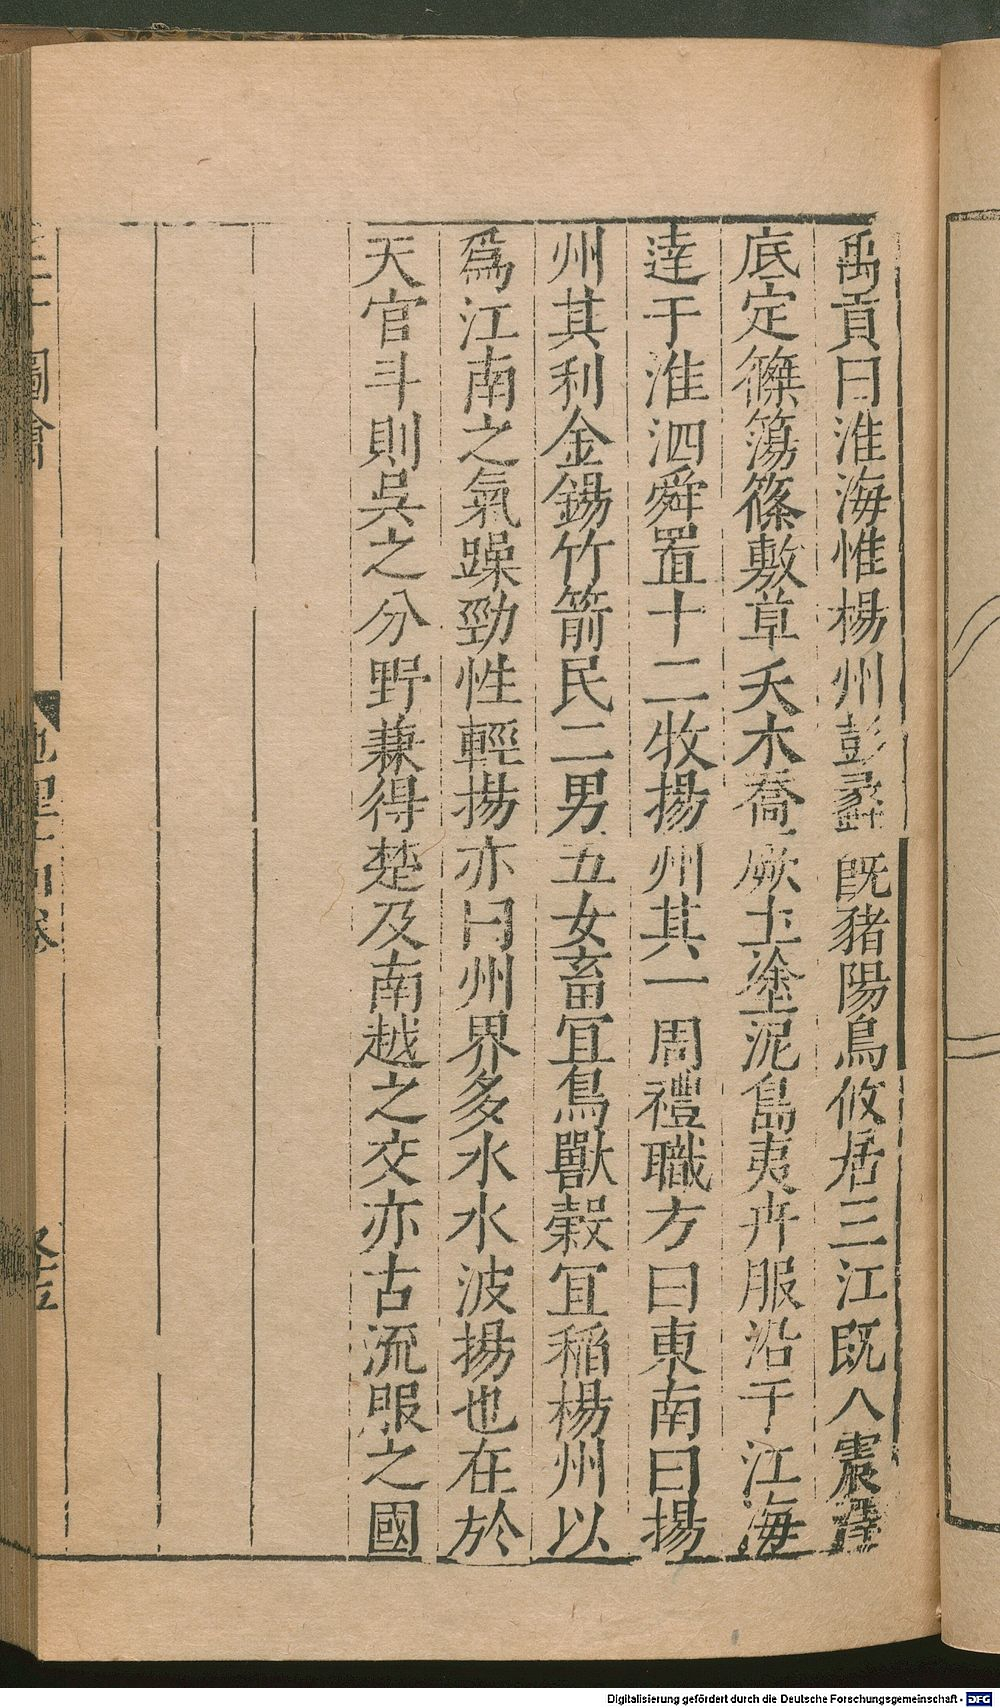 禹貢曰淮海惟楊州彭蠡既豬陽鳥攸居三江既入震澤
底定篠簜篠敷草夭木喬厥土塗泥島夷卉服沿于江海
達于淮泗舜置十二牧揚州其一周禮職方曰東南曰揚
州其利金錫竹箭民二男五女畜宜鳥獸穀宜稻楊州以
為江南之氣躁勁性輕揚亦曰州界多水水波揚也在於
天官斗則吳之分野兼得楚及南越之交亦古流服之國
圖會
地理
卷
Digitalisierung gefördert durch die Deutsche Forschungsgemeinschaft - DFG